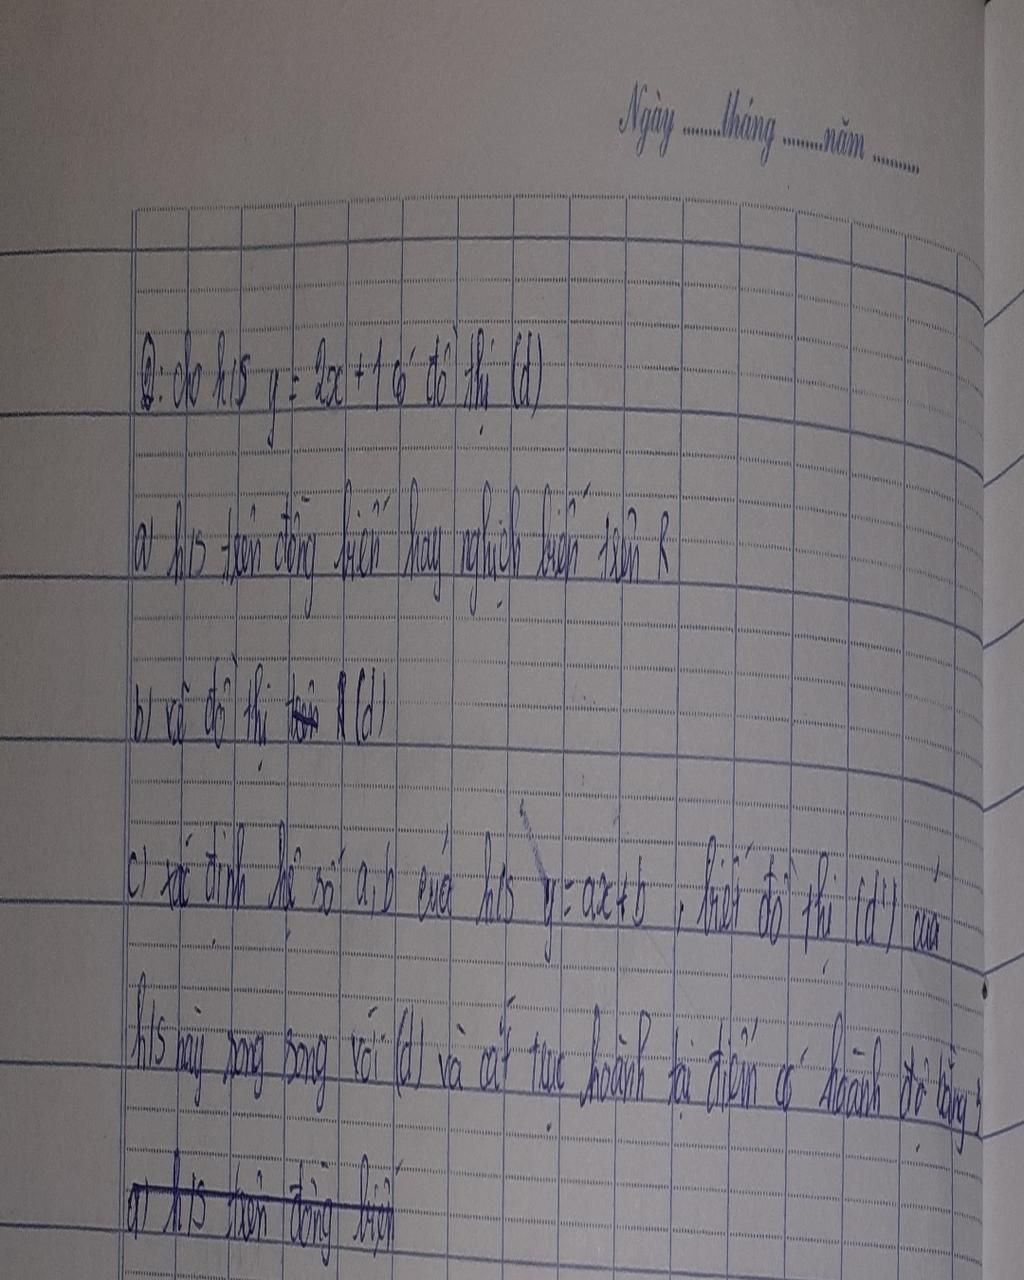 Ngày ........tháng ........năm .........
2: cho h/s y = 2x + 1 có đồ thị (d)
a) h/s trên đồng biến hay nghịch biến trên R
b) vẽ đồ thị (d)
c) xác định hệ số a, b của h/s y = ax + b, biết đồ thị (d') của
h/s này song song với (d) và cắt trục hoành tại điểm có hoành độ bằng
a) h/s trên đồng biến